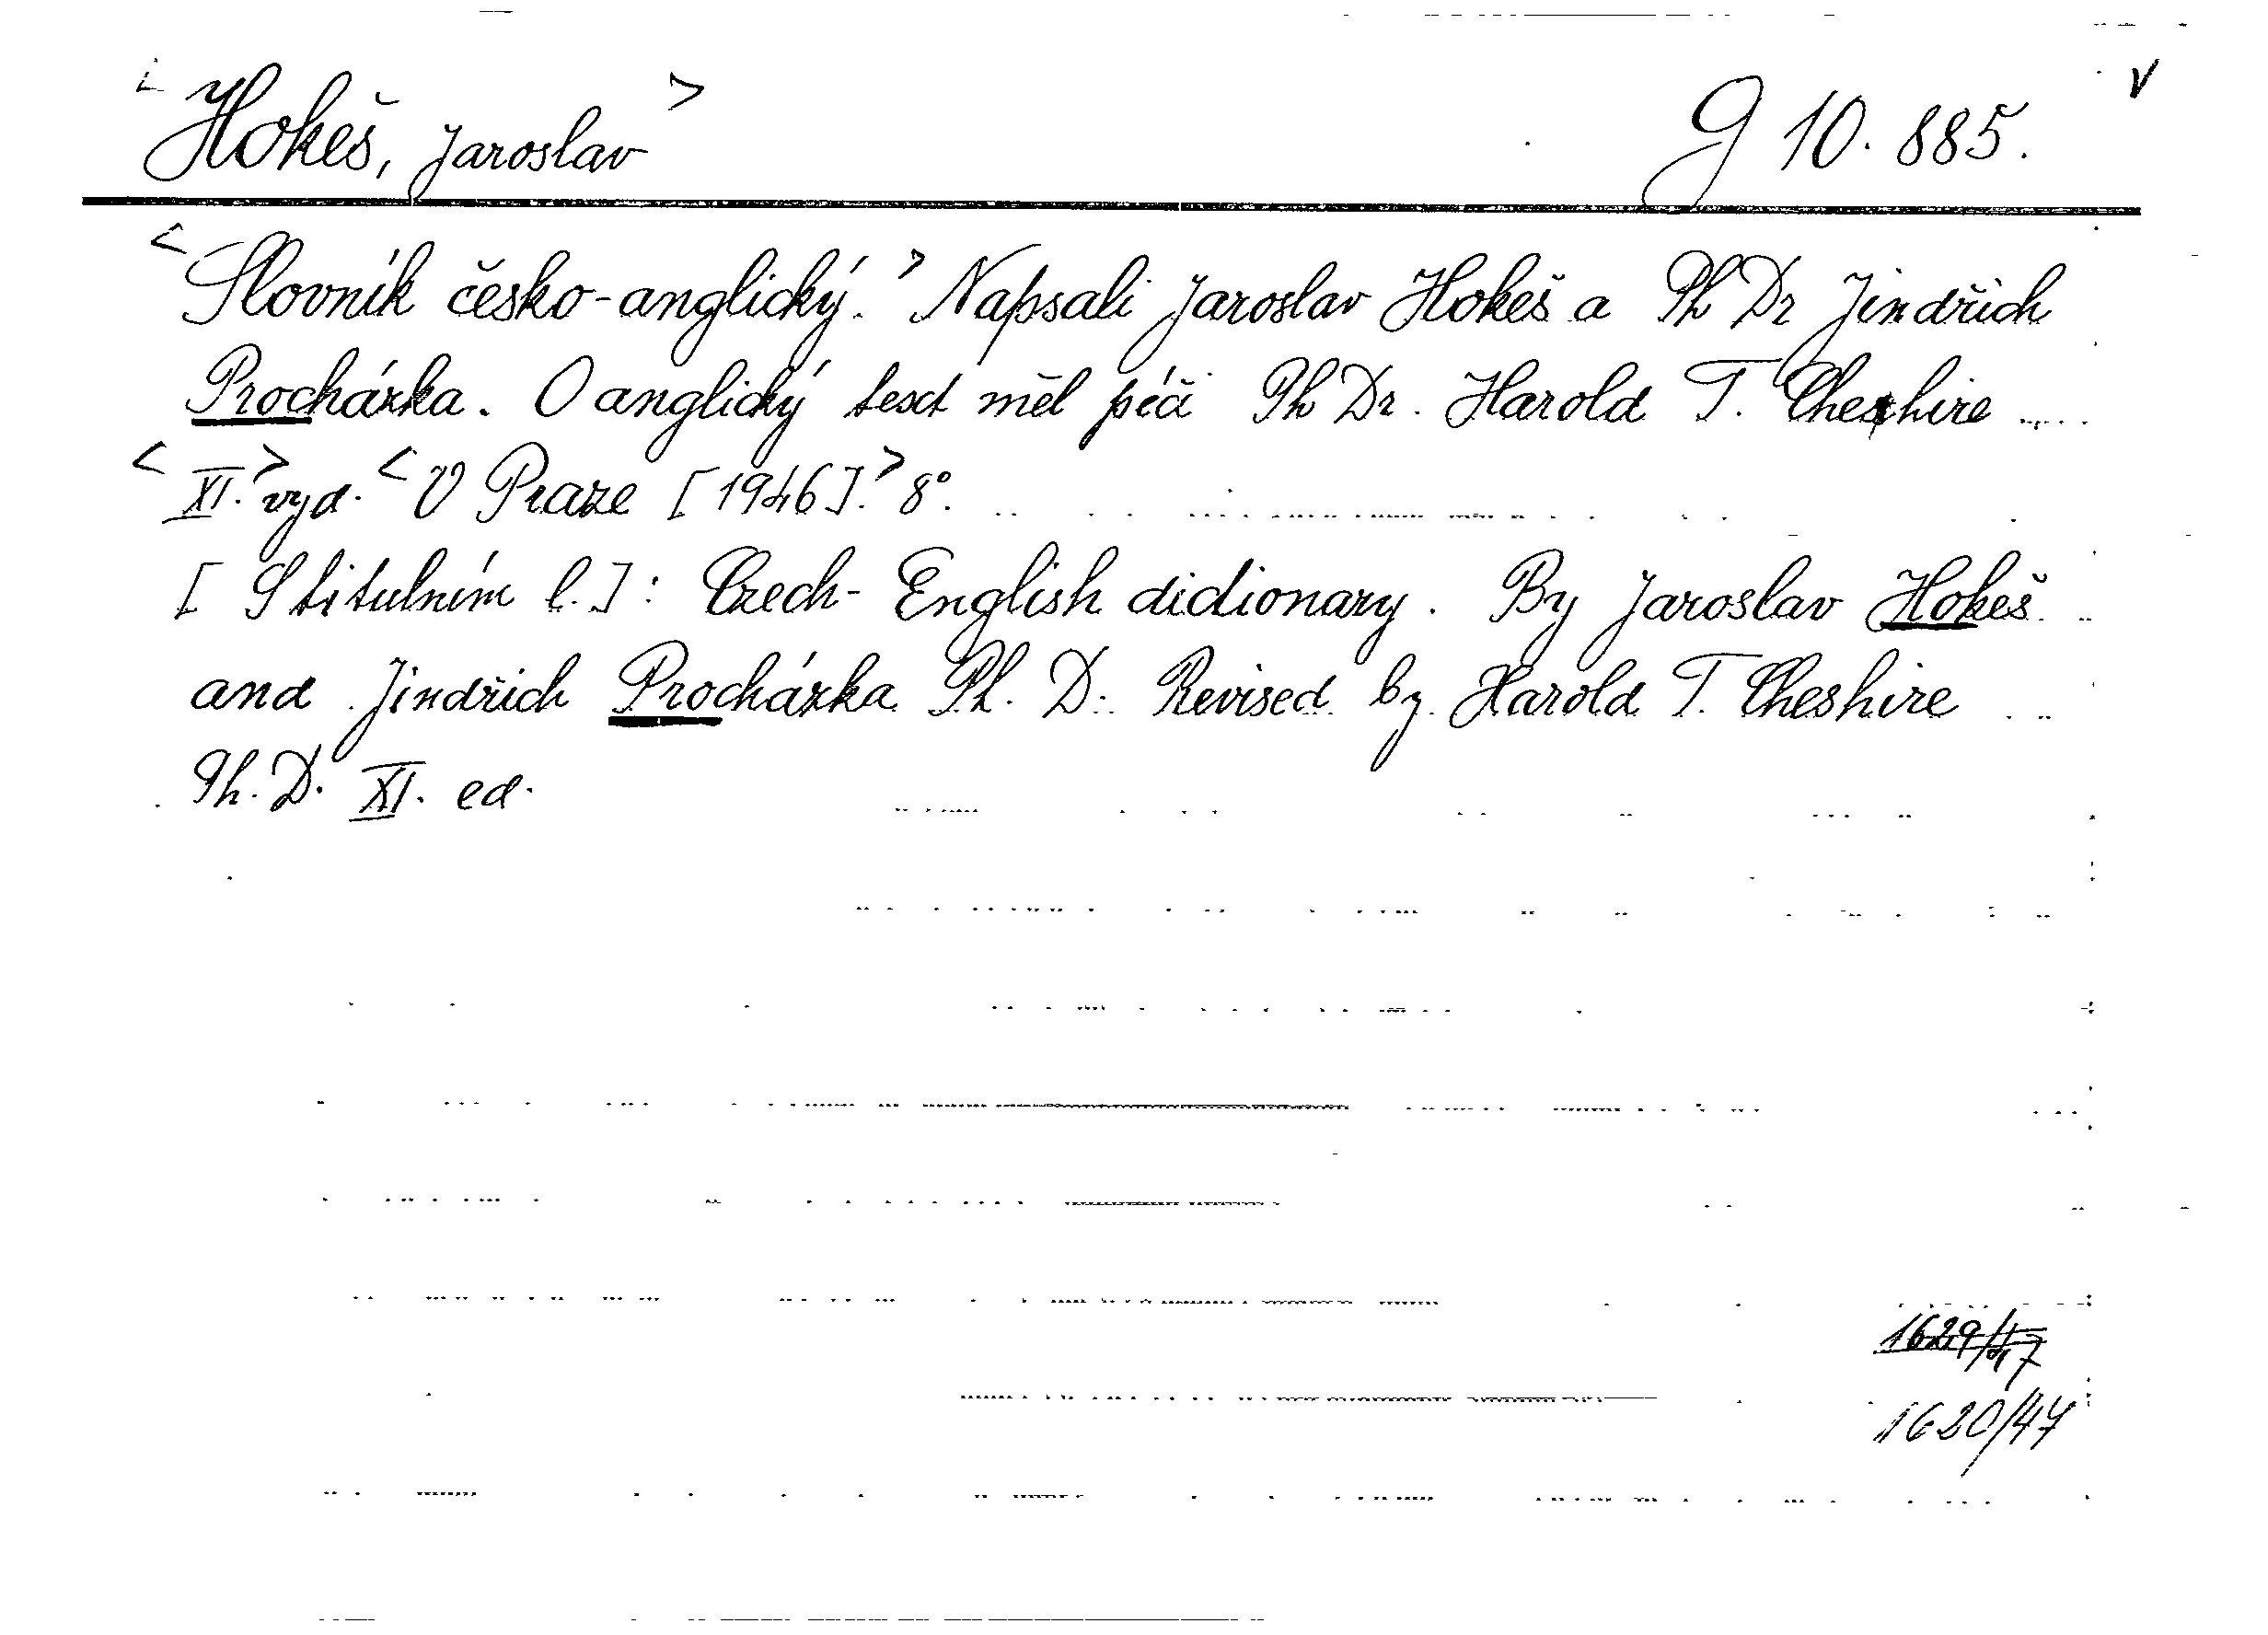 <Hokeš, Jaroslav> G 10.885. v
<Slovník česko-anglický.> Napsali Jaroslav Hokeš a PhDr Jindřich
Procházka. O anglický text měl péči PhDr. Harold T. Cheshire
<XI.> vyd. <V Praze [1946].> 8°.
[S titulním l.]: Czech-English dictionary. By Jaroslav Hokeš
and Jindřich Procházka Ph. D. Revised by Harold T. Cheshire
Ph. D. XI. ed.
1629/47
1620/47